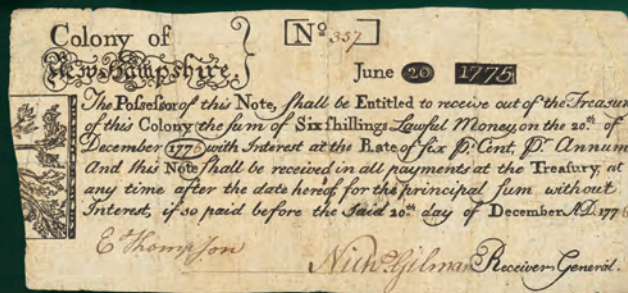 Colony of
New Hampshire,
No 357
June 20 1775
The Possessor of this Note, shall be Entitled to receive out of the Treasur
of this Colony the sum of Six shillings Lawful Money, on the 20th of
December 1776 with Interest at the Rate of six Pr. Cent, Pr. Annum
And this Note shall be received in all payments at the Treasury, at
any time after the date hereof, for the principal sum without
Interest, if so paid before the said 20th day of December A.D. 1776
E Thompson
Nichs. Gilman Receiver General.